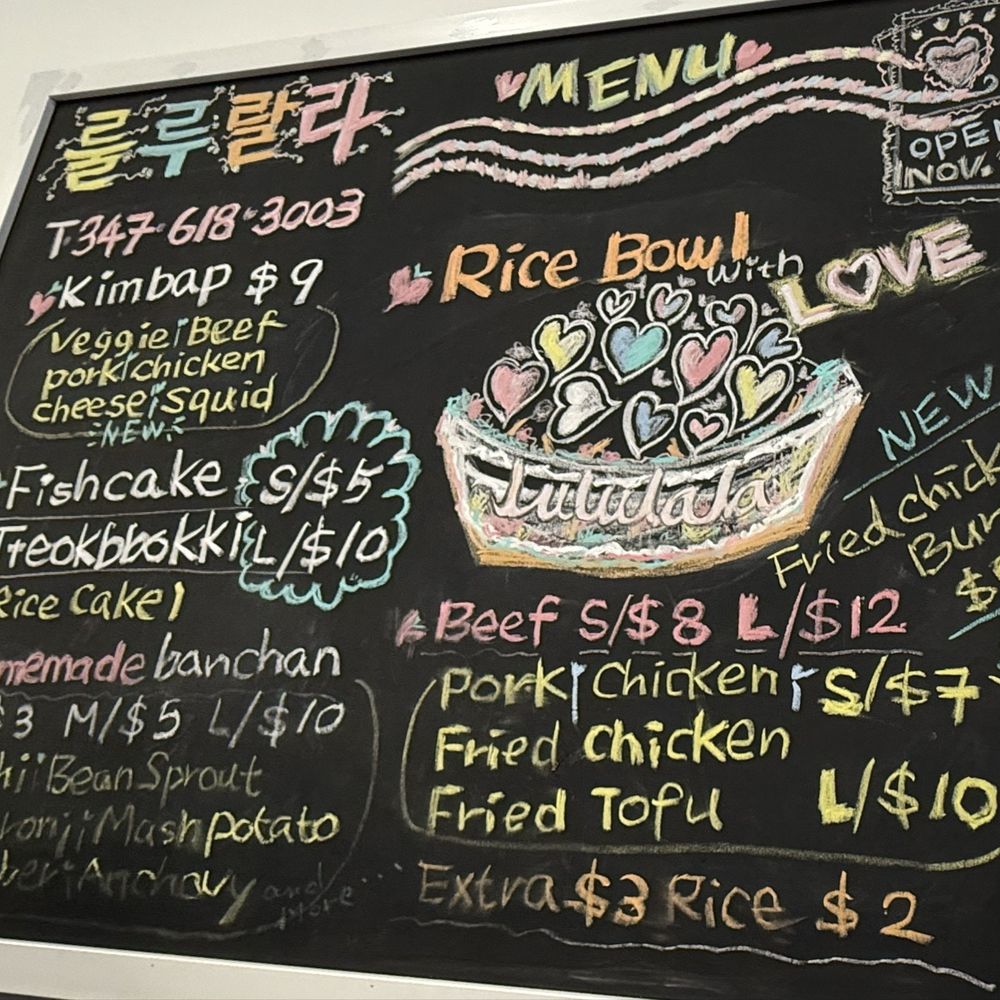 룰루랄라
MENU
OPE
NOV.
T.347-618-3003
Kimbap $9
Veggie, Beef
pork, chicken
cheese, squid
NEW
Fishcake S/$5
Tteokbbokki L/$10
Rice Cake)
memade banchan
$3 M/$5 L/$10
hi, Bean Sprout
onji, Mash potato
ber, Anchovy and
more ....
Rice Bowl
with LOVE
Lululala
NEW
Fried chick
Bur
$
Beef S/$8 L/$12
Pork, Chicken, S/$7
Fried chicken
Fried Tofu L/$10
Extra $3 Rice $2